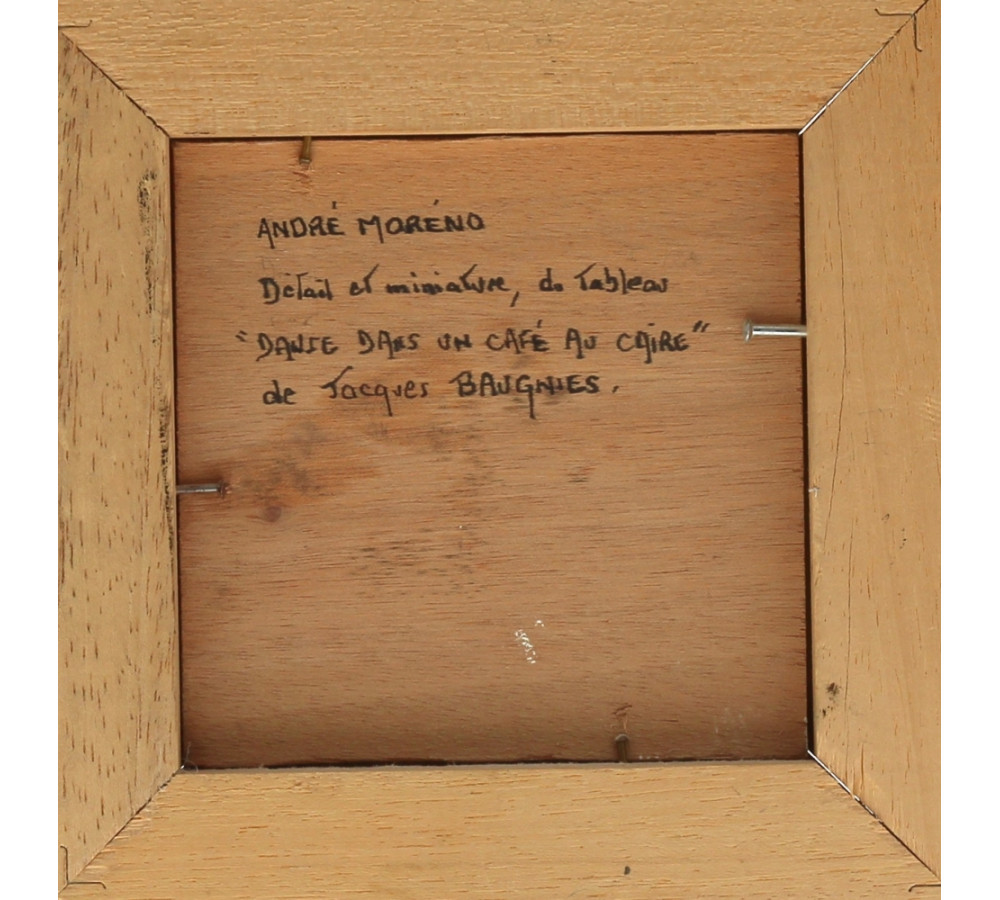 ANDRÉ MORÉNO
Détail et miniature, du Tableau
"DANSE DANS UN CAFÉ AU CAIRE"
de Jacques BAUGNIES.